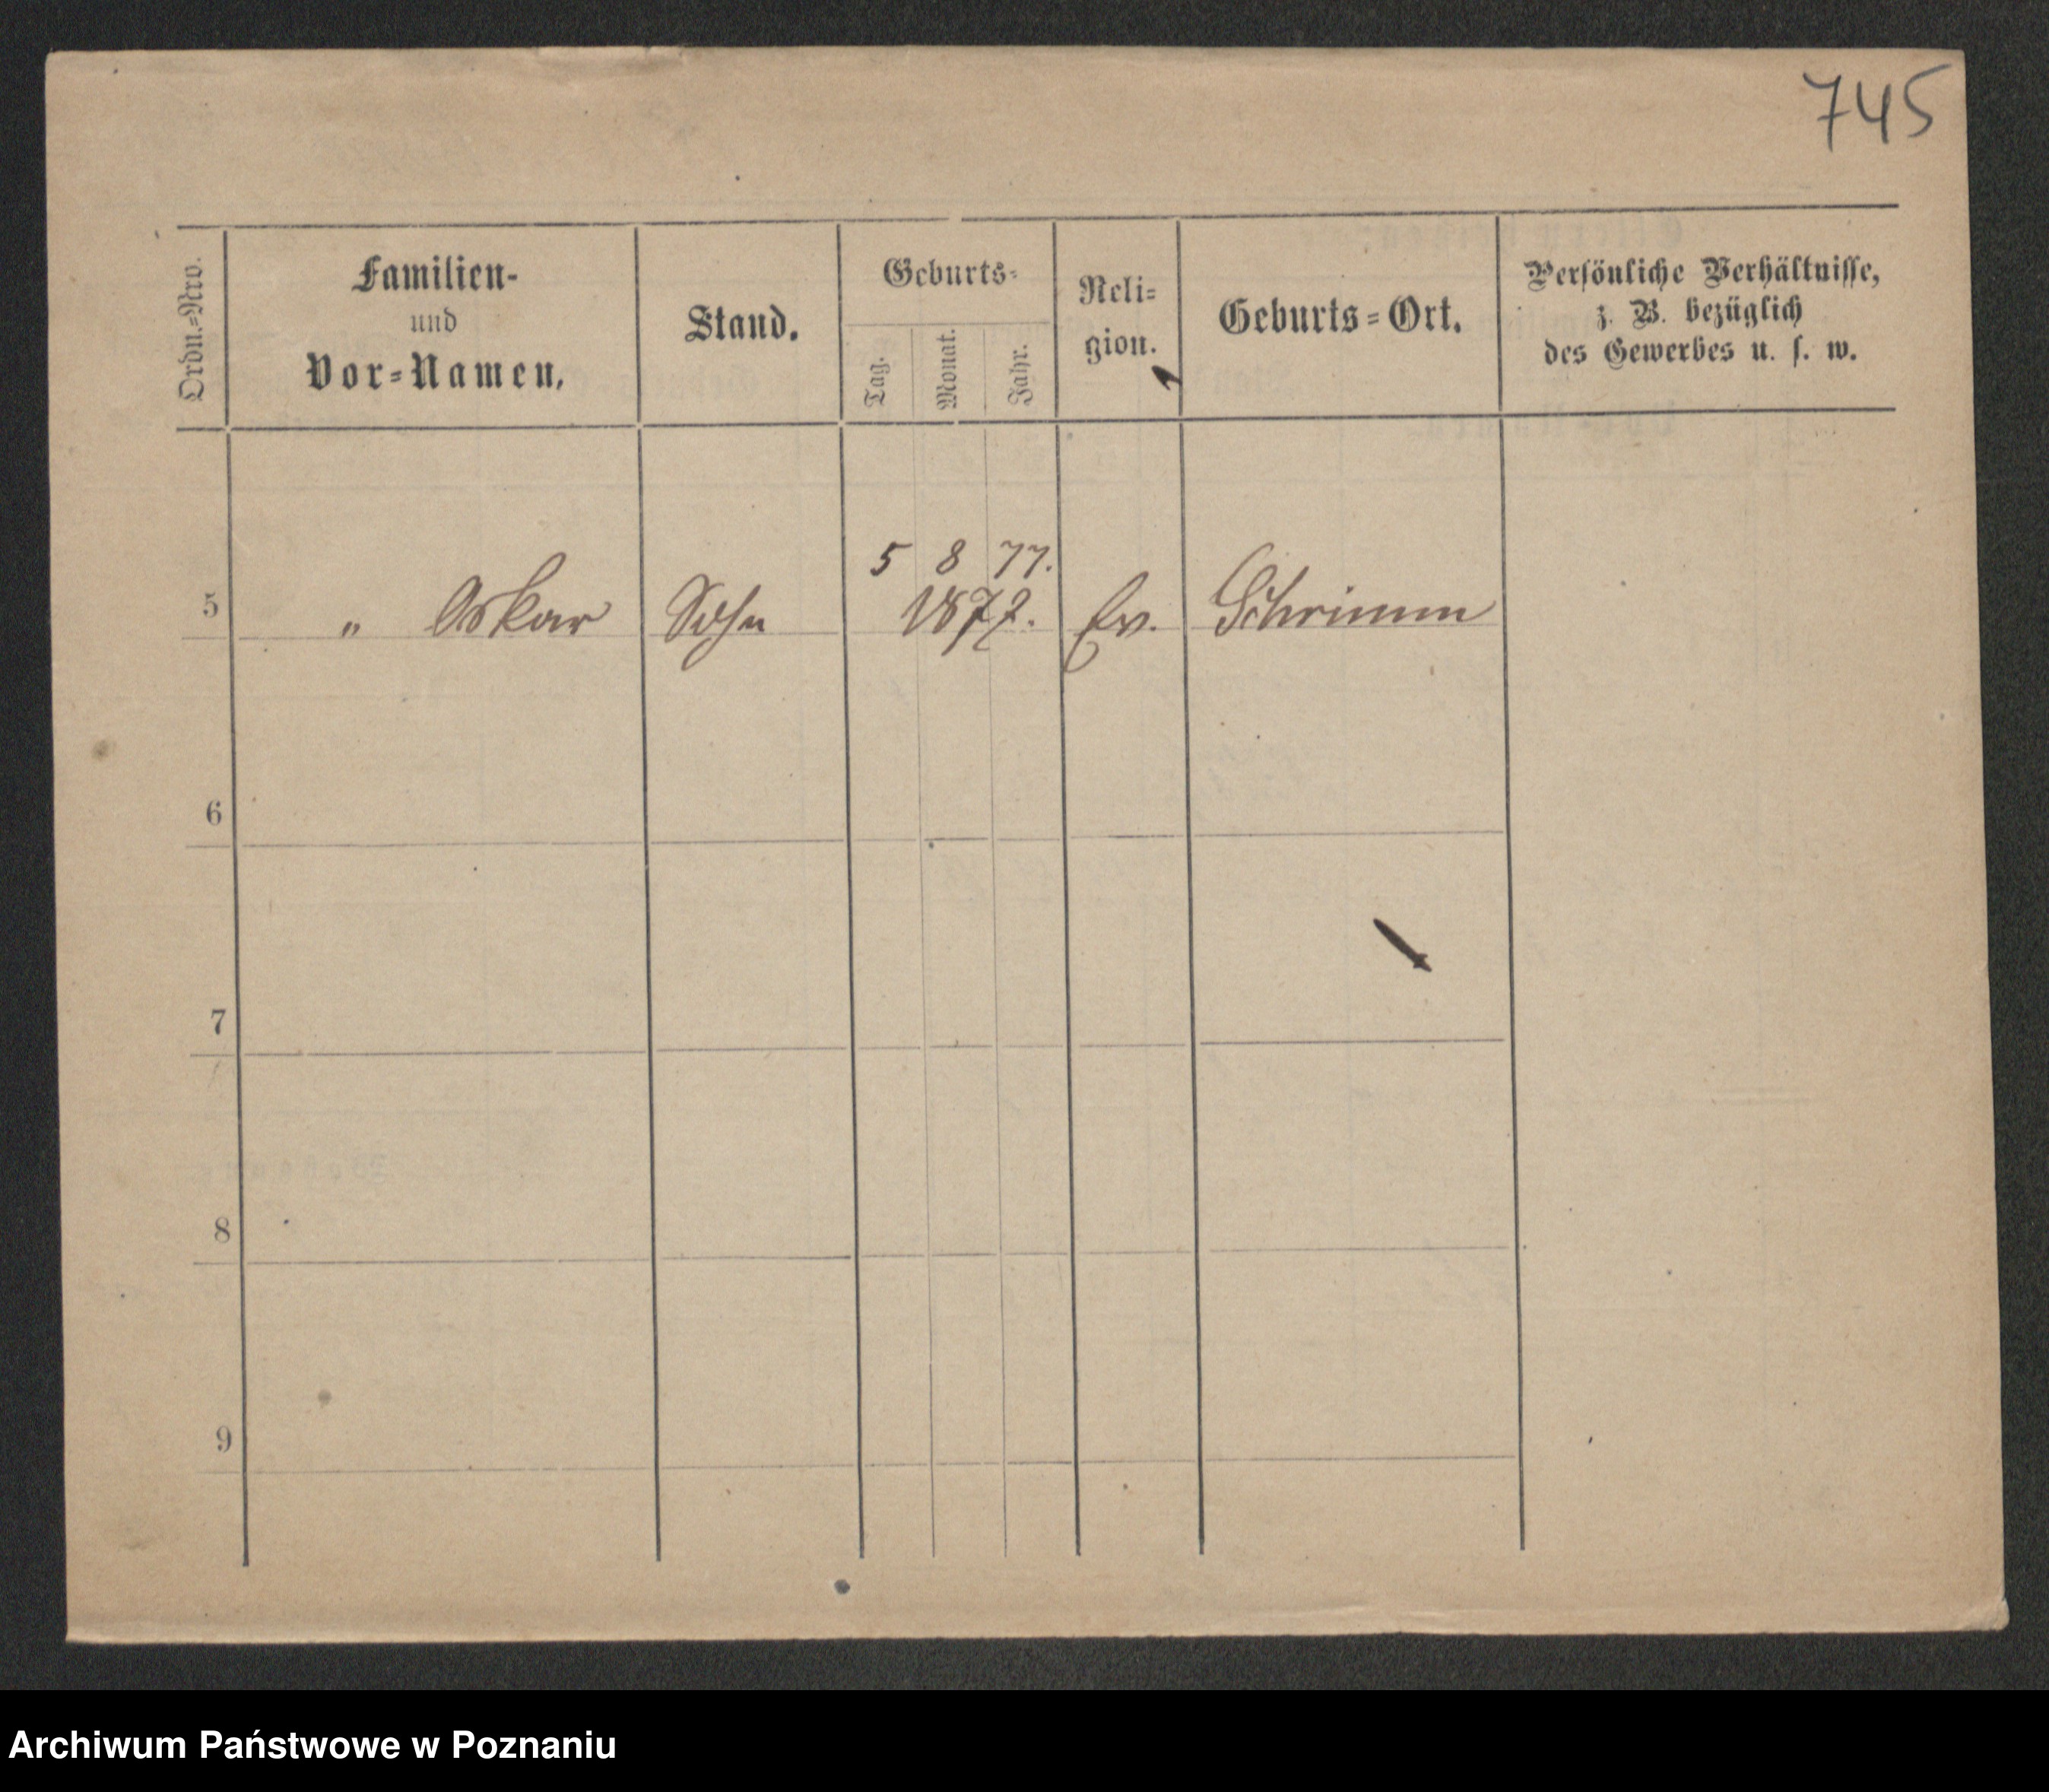 745
Ordn.-Nro.
Familien-
und
Vor-Namen.
Stand.
Geburts-
Tag.
Monat.
Jahr.
Reli-
gion.
Geburts-Ort.
Persönliche Verhältnisse,
z. B. bezüglich
des Gewerbes u. s. w.
5 8 77.
5 " Oskar Sohn 1877. Ev. Schrimm
6
7
8
9
Archiwum Państwowe w Poznaniu